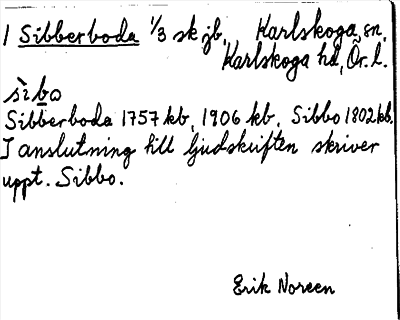 1 Sibberboda 1/3 sk jb, Karlskoga sn,
Karlskoga hd, Ör. l.
sìbo
Sibberboda 1757 kb, 1906 kb, Sibbo 1802 kb.
I anslutning till ljudskriften skriver
uppt. Sibbo.
Erik Noreen